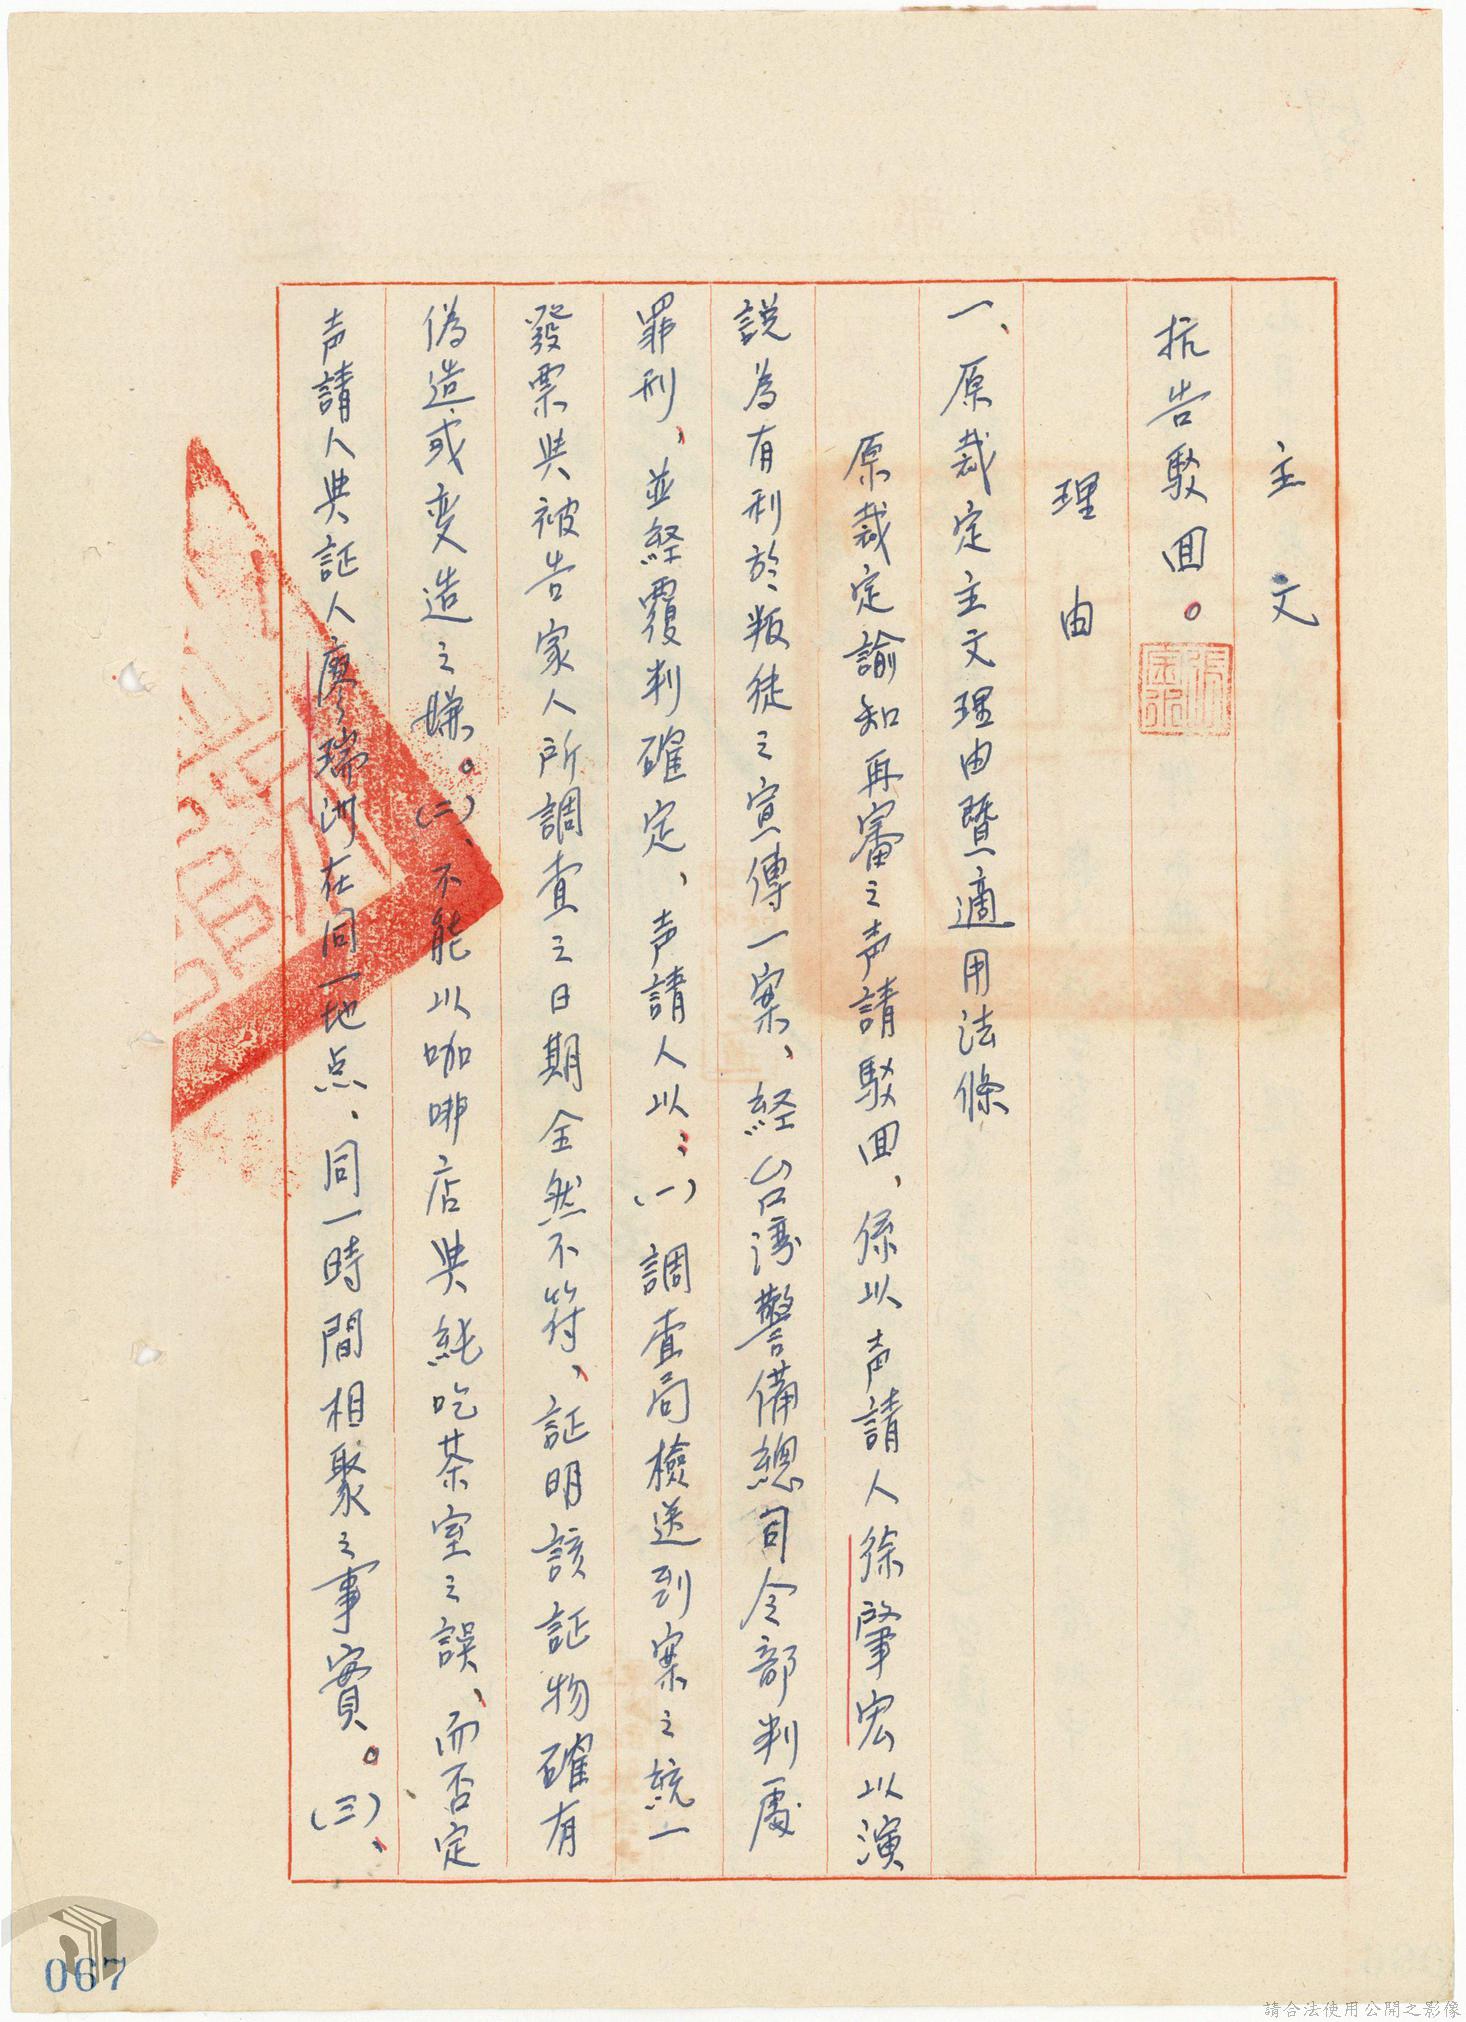 主文
抗告駁回。
理由
一、原裁定主文理由暨適用法條
原裁定諭知再審之声請駁回、係以声請人徐肇宏以演
説為有利於叛徒之宣傳一案、経台湾警備總司令部判處
罪刑、並経覆判確定、声請人以：(一)調查局檢送到案之統一
發票與被告家人所調查之日期全然不符、証明該証物確有
偽造或变造之嫌。(二)、不能以咖啡店與純吃茶室之誤、而否定
声請人與証人廖瑞洲在同一地点、同一時間相聚之事實。(三)、
067
請合法使用公開之影像